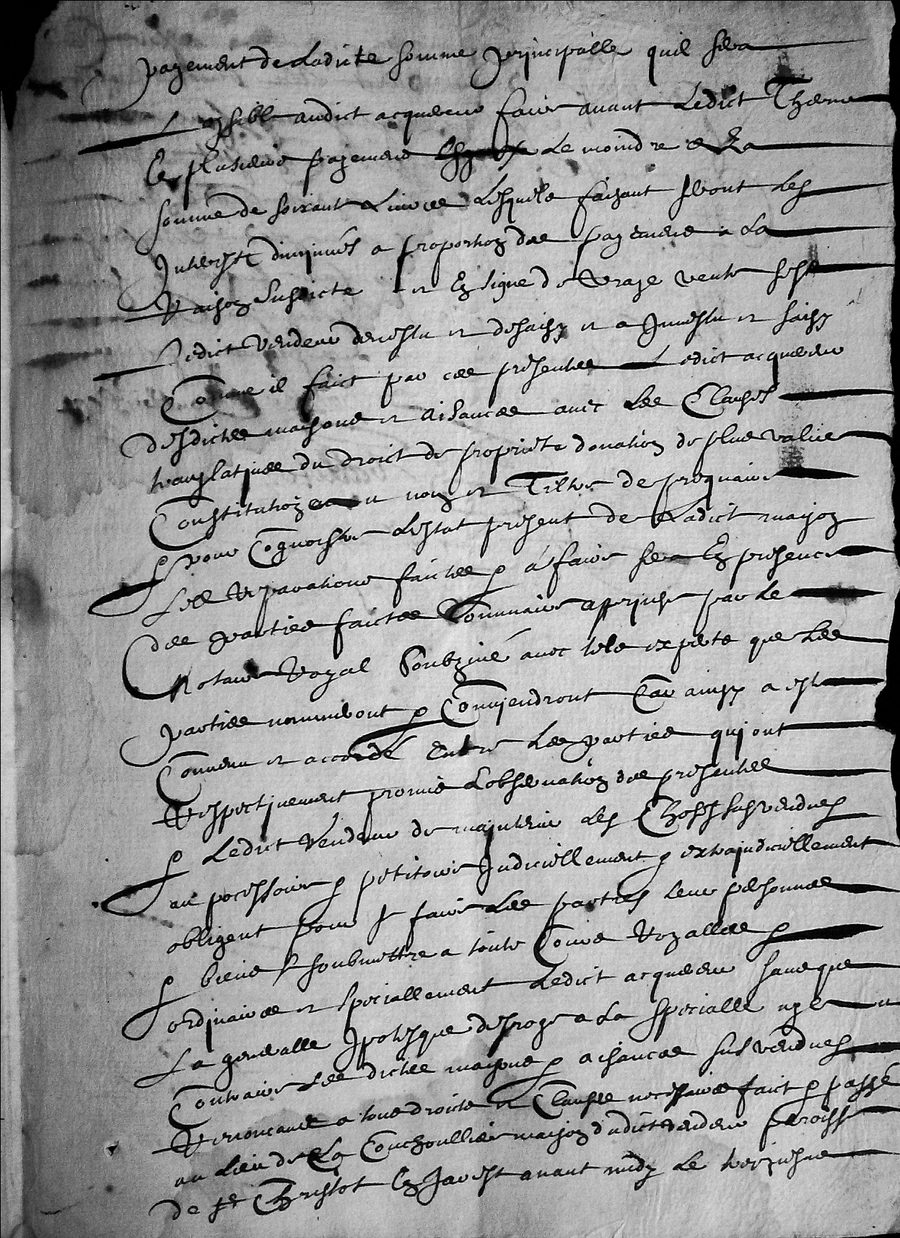 payement de ladicte somme principalle quil sera
Loysible audict acquereur faire avant ledict Therme
En plusieurs payemens le moindre de la
somme de soixante Livres Lesquels faizant seront les
Interestz diminués a proportion des payemens a la
Raison susdicte et En signe de vraye vente sest
Ledict vendeur devestu et desaisy et a Investu et saisy
Comme il faict par ces presentes Ledict acquereur
desdictes maisons et aisances avec les Clauses
translatives du droict de propriete donation de plus value
Constitution en nom et Tiltre de precaire
& pour Cognoistre Lestat present de Ladict maison
Les Reparations faictes & a faire sera En presence
des parties faictes Sommaire apprise par le
Notaire Royal Soubzigné avec tels expertz que les
parties nommeront & Conviendront Car ainsy a est
Convenu et accordé Entre Les parties qui ont
Respectivement promis Lobservation des presentes
& Ledict vendeur de maintenir Les Choses susvendues
au pocessoire & petitoire Judiciellement & extrajudiciellement
obligent pour ce faire Les parties leurs personnes
& biens & soubmettre a toute Cours Royalles &
ordinaires et speciallement Ledict acquereur sans que
La generalle Ipoteque desroge a La specialle ny au
Contraire Les dictes maisons & aisances susvendues
Renoncant a tous droictz et Clauses necessaires faict & passé
au Lieu de La maison dudict vendeur paroisse
de St Christot En Javest avant midy le